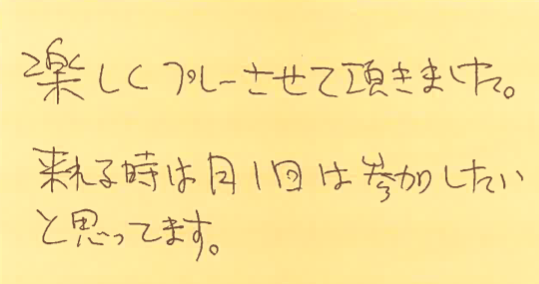 楽しくプレーさせて頂きました。
来れる時は月1回は参加したい
と思ってます。